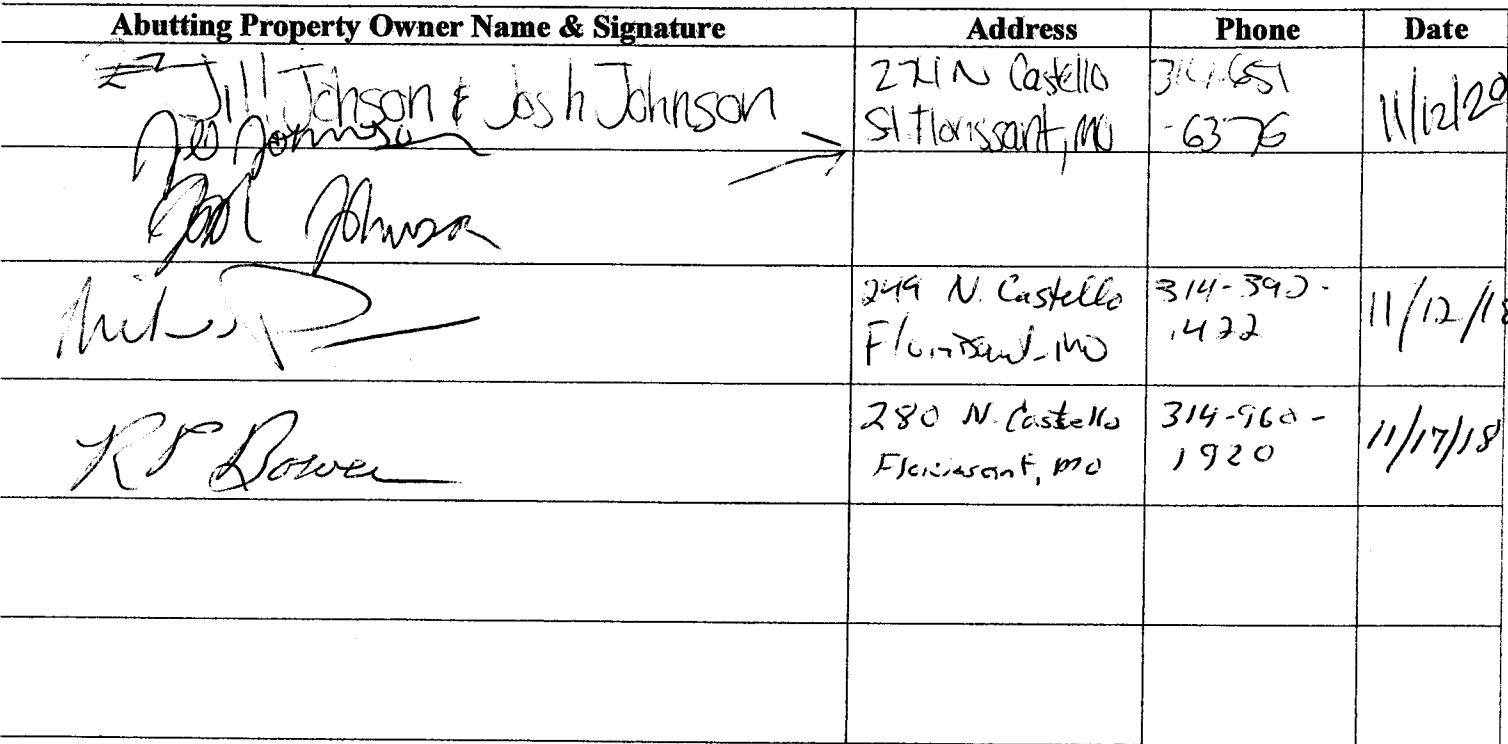 Abutting Property Owner Name & Signature Address Phone Date
Jill Johson & Josh Johnson
Jill Johnson
Josh Johnson
271 N Castello
St Florissant, MO
314-651
-6376
11/12/20
249 N. Castello
Florissant, MO
314-390-
1422
11/12/18
RP Bower
280 N. Castello
Florissant, MO
314-960-
1920
11/17/18